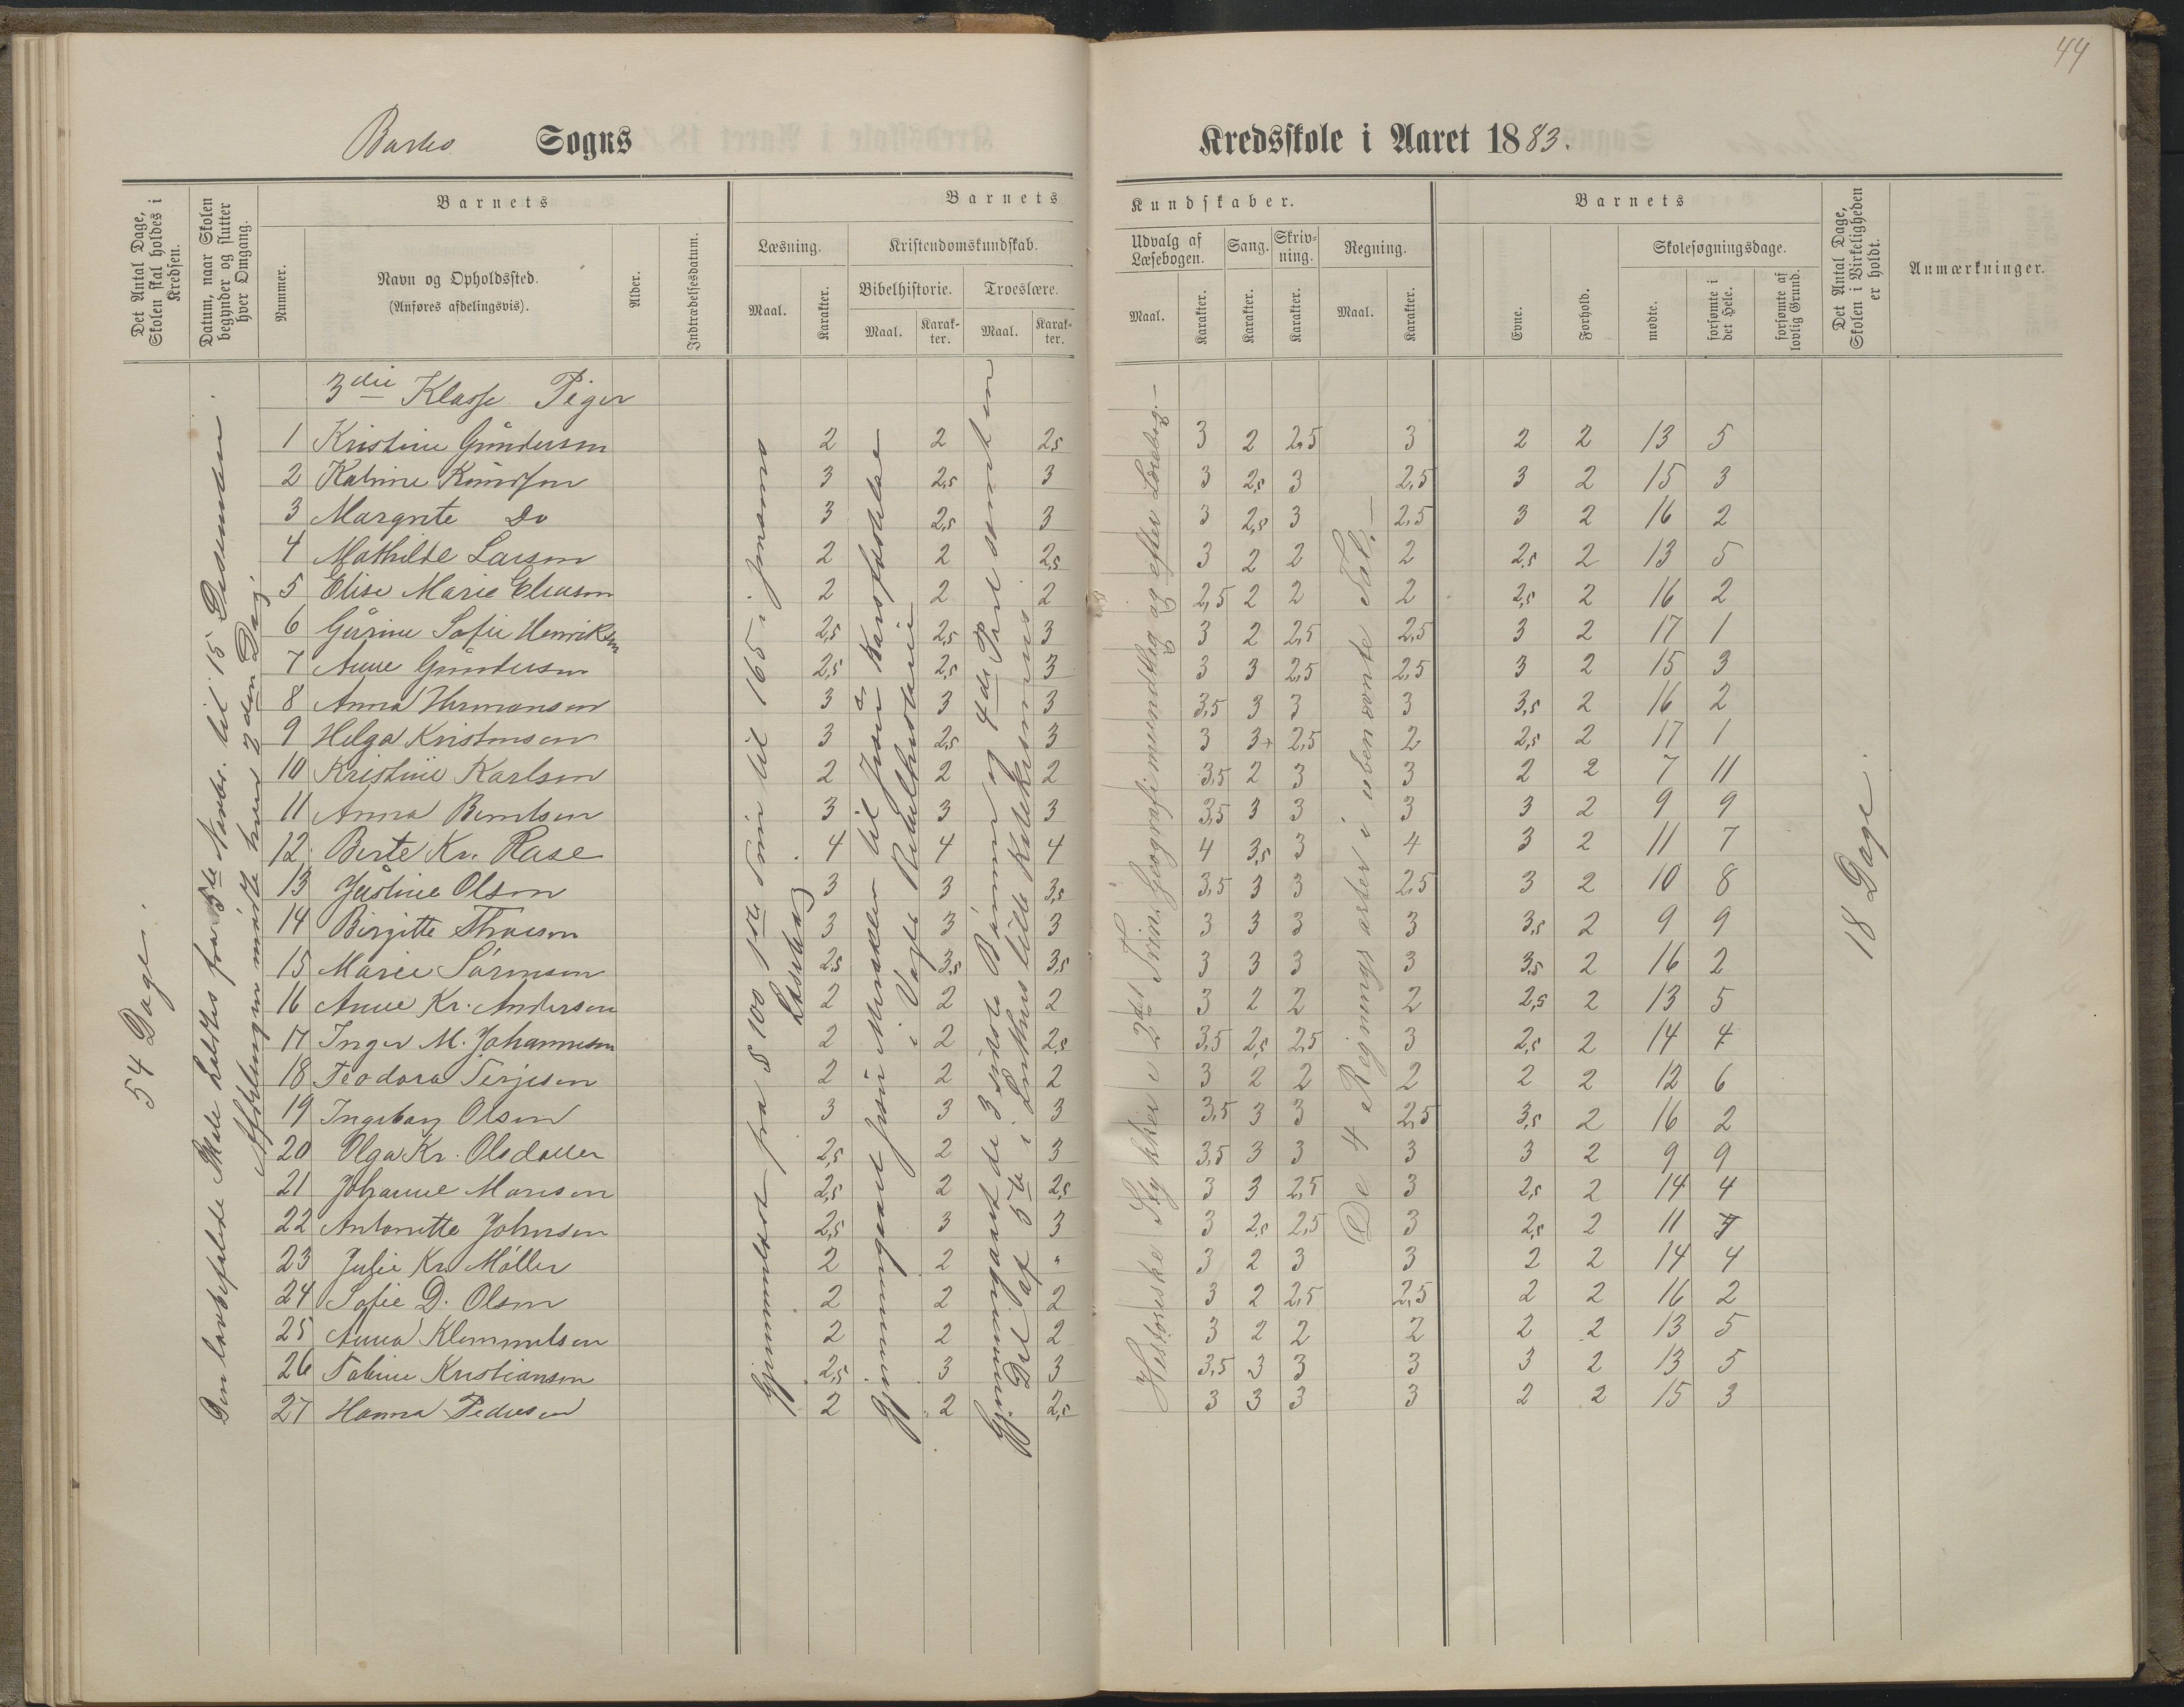 44
Barbo Sogns Kredsskole i Aaret 1883.
Det Antal Dage, Skolen skal holdes i Kredsen.
Datum, naar Skolen begynder og slutter hver Omgang.
Barnets
Nummer.
Navn og Opholdssted.
(Anføres afdelingsvis).
Alder.
Indtrædelsesdatum.
Barnets Kundskaber.
Læsning.
Maal.
Karakter.
Kristendomskundskab.
Bibelhistorie.
Maal.
Karakter.
Troeslære.
Maal.
Karakter.
Udvalg af Læsebogen.
Maal.
Karakter.
Sang.
Karakter.
Skrivning.
Karakter.
Regning.
Maal.
Karakter.
Barnets
Evne.
Forhold.
Skolesøgningsdage.
mødte.
forsømte i det Hele.
forsømte af lovlig Grund.
Det Antal Dage, Skolen i Virkeligheden er holdt.
Anmærkninger.
54 Dage.
Den lovbefalede Skole holdtes fra 5te Novbr. til 15 Desember.
Afdelingen mødte hver 2den Dag.
fra S 100 1ste Trin til 165 i
Læsebog
i Vogts Bibelhistorie
4de Part samt
5te i Luthers lille Katekismus
Stykker i 2det Trin. Geografi mundtlig og efter Læsebog.
De 4 Regningsarter i ubenævnte Tal.
18 Dage.
3die Klasse Piger
1 Kristine Gundersen 2 2 2,5 3 2 2,5 3 2 2 13 5
2 Katrine Knudsen 3 2,5 3 3 2,5 3 2,5 3 2 15 3
3 Margrete Do 3 2,5 3 3 2,5 3 2,5 3 2 16 2
4 Mathilde Larsen 2 2 2,5 3 2 2 2 2,5 2 13 5
5 Elise Marie Eliasen 2 2 2 2,5 2 2 2 2,5 2 16 2
6 Gurine Sofie Henriksen 2,5 2,5 3 3 2 2,5 2,5 3 2 17 1
7 Anne Gundersen 2,5 2,5 3 3 3 2,5 2,5 3 2 15 3
8 Anna Hermansen 3 3 3 3,5 3 3 3 3,5 2 16 2
9 Helga Kristensen 3 2,5 3 3 3+ 2,5 2 2,5 2 17 1
10 Kristine Karlsen 2 2 2 3,5 2 3 3 2 2 7 11
11 Anna Berntsen 3 3 3 3,5 3 3 3 3 2 9 9
12 Berte Kr. Rase 4 4 4 4 3,5 3 4 3 2 11 7
13 Justine Olsen 3 3 3,5 3,5 3 3 2,5 3 2 10 8
14 Birgitte Thorsen 3 3 3 3 3 3 3 3,5 2 9 9
15 Marie Sørensen 2,5 3,5 3,5 3 3 3 3 3,5 2 16 2
16 Anne Kr. Andersen 2 2 2 3 2 2 2 2,5 2 13 5
17 Inger M. Johannesen 2 2 2,5 3,5 2,5 2,5 3 2,5 2 14 4
18 Teodora Terjesen 2 2 2 3 2 2 2 2 2 12 6
19 Ingeborg Olsen 3 3 3 3,5 3 3 2,5 3,5 2 16 2
20 Olga Kr. Olsdatter 2,5 2 3 3,5 3 3 3 3 2 9 9
21 Johanne Monsen 2,5 2 2,5 3 3 2,5 3 2,5 2 14 4
22 Antonette Johnsen 2,5 3 3 3 2,5 2,5 3 2,5 2 11 7
23 Julie Kr. Møller 2 2 " 3 2 3 3 2 2 14 4
24 Sofie D. Olsen 2 2 2 3 2 2,5 2,5 2 2 16 2
25 Anna Klemmetsen 2 2 2 3 2 2 2 2 2 13 5
26 Tobine Kristiansen 2,5 3 3 3,5 3 3 3 3 2 13 5
27 Hanna Pedersen 2 2 2,5 3 3 3 3 2 2 15 3